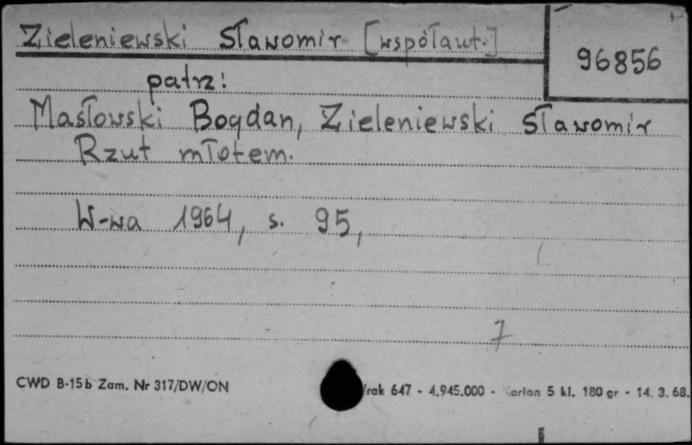 Zieleniewski Sławomir [współaut.]
96856
patrz:
Masłowski Bogdan, Zieleniewski Sławomir
Rzut młotem.
W-wa 1964, s. 95,
7
CWD B-15b Zam. Nr 317/DW/ON
647 - 4.945.000 - 5 kl. 180 gr - 14. 3. 68.